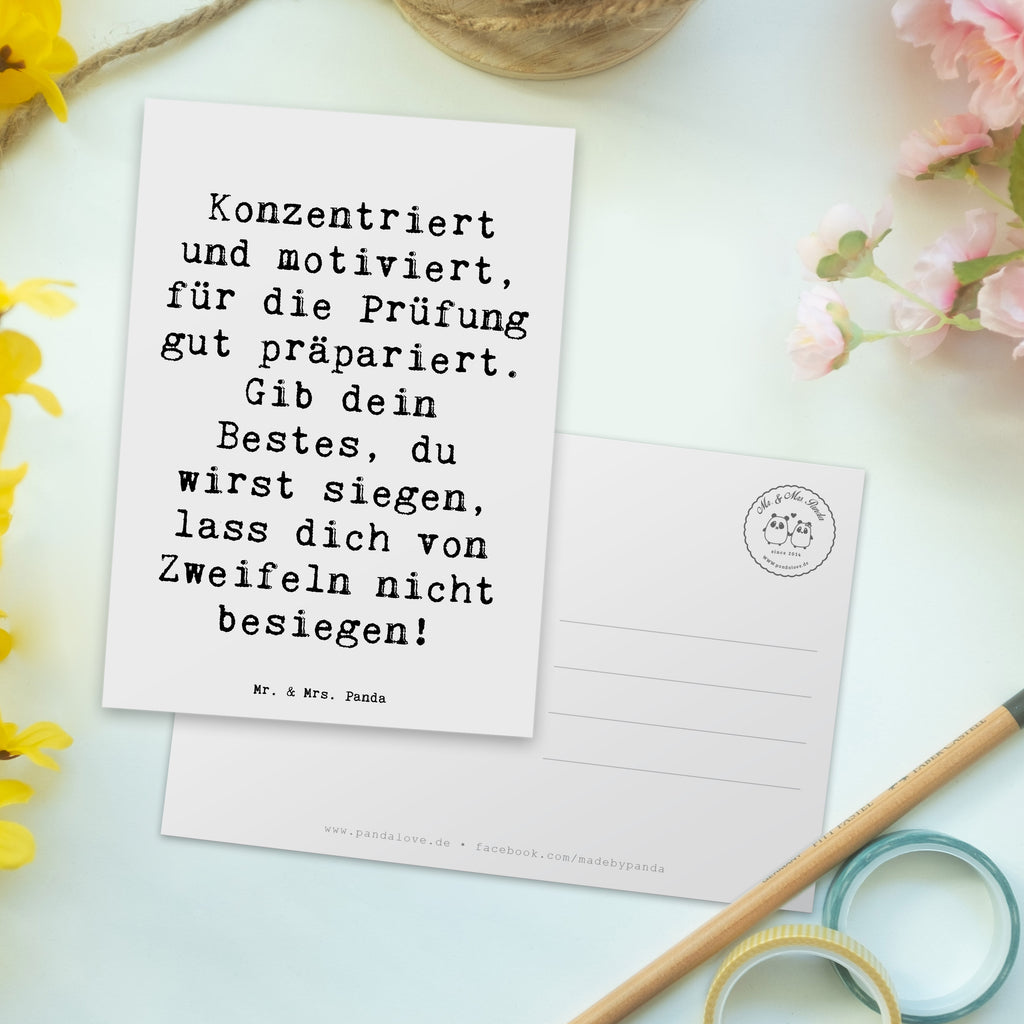 Konzentriert
und motiviert,
für die Prüfung
gut präpariert.
Gib dein
Bestes, du
wirst siegen,
lass dich von
Zweifeln nicht
besiegen!
Mr. & Mrs. Panda
Mr. & Mrs. Panda
since 2014
www.pandalove.de
www.pandalove.de • facebook.com/madebypanda
PITT PASTEL FABER-CASTELL